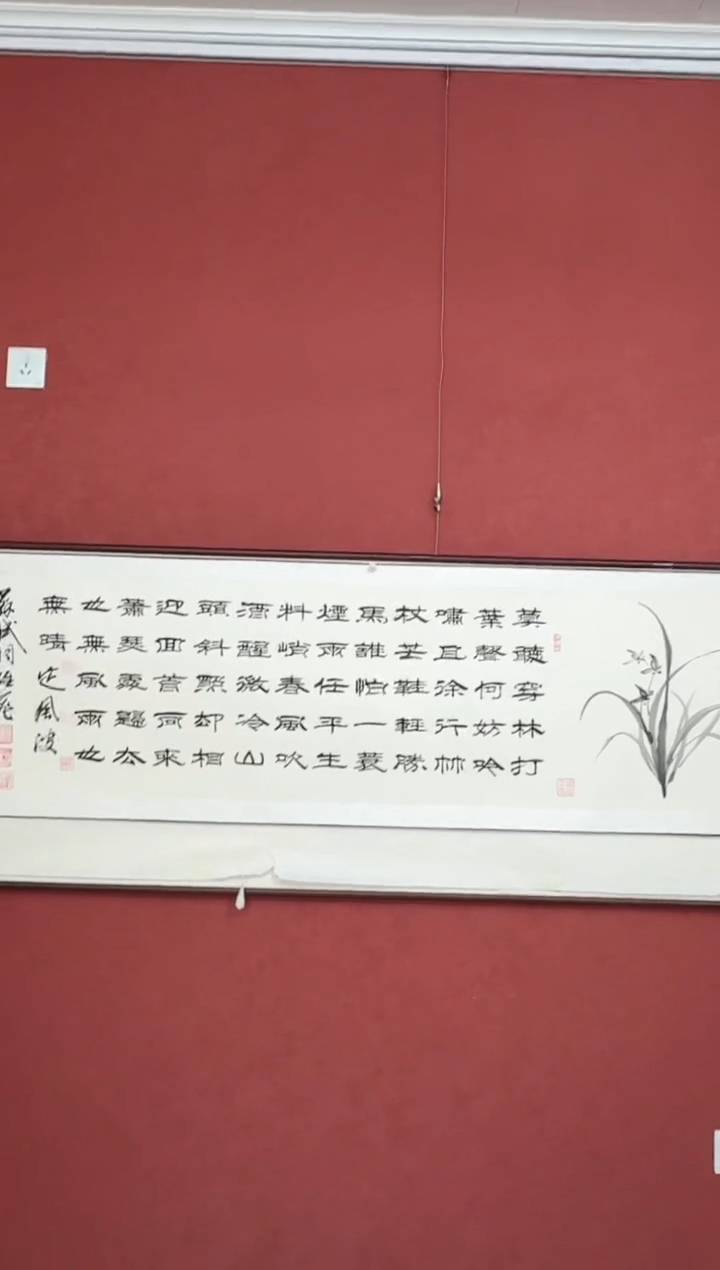 莫聽穿林打
葉聲何妨吟
嘯且徐行竹
杖芒鞋輕勝
馬誰怕一蓑
煙雨任平生
料峭春風吹
酒醒微冷山
頭斜照却相
迎回首向來
蕭瑟處歸去
也無風雨也
無晴定風波